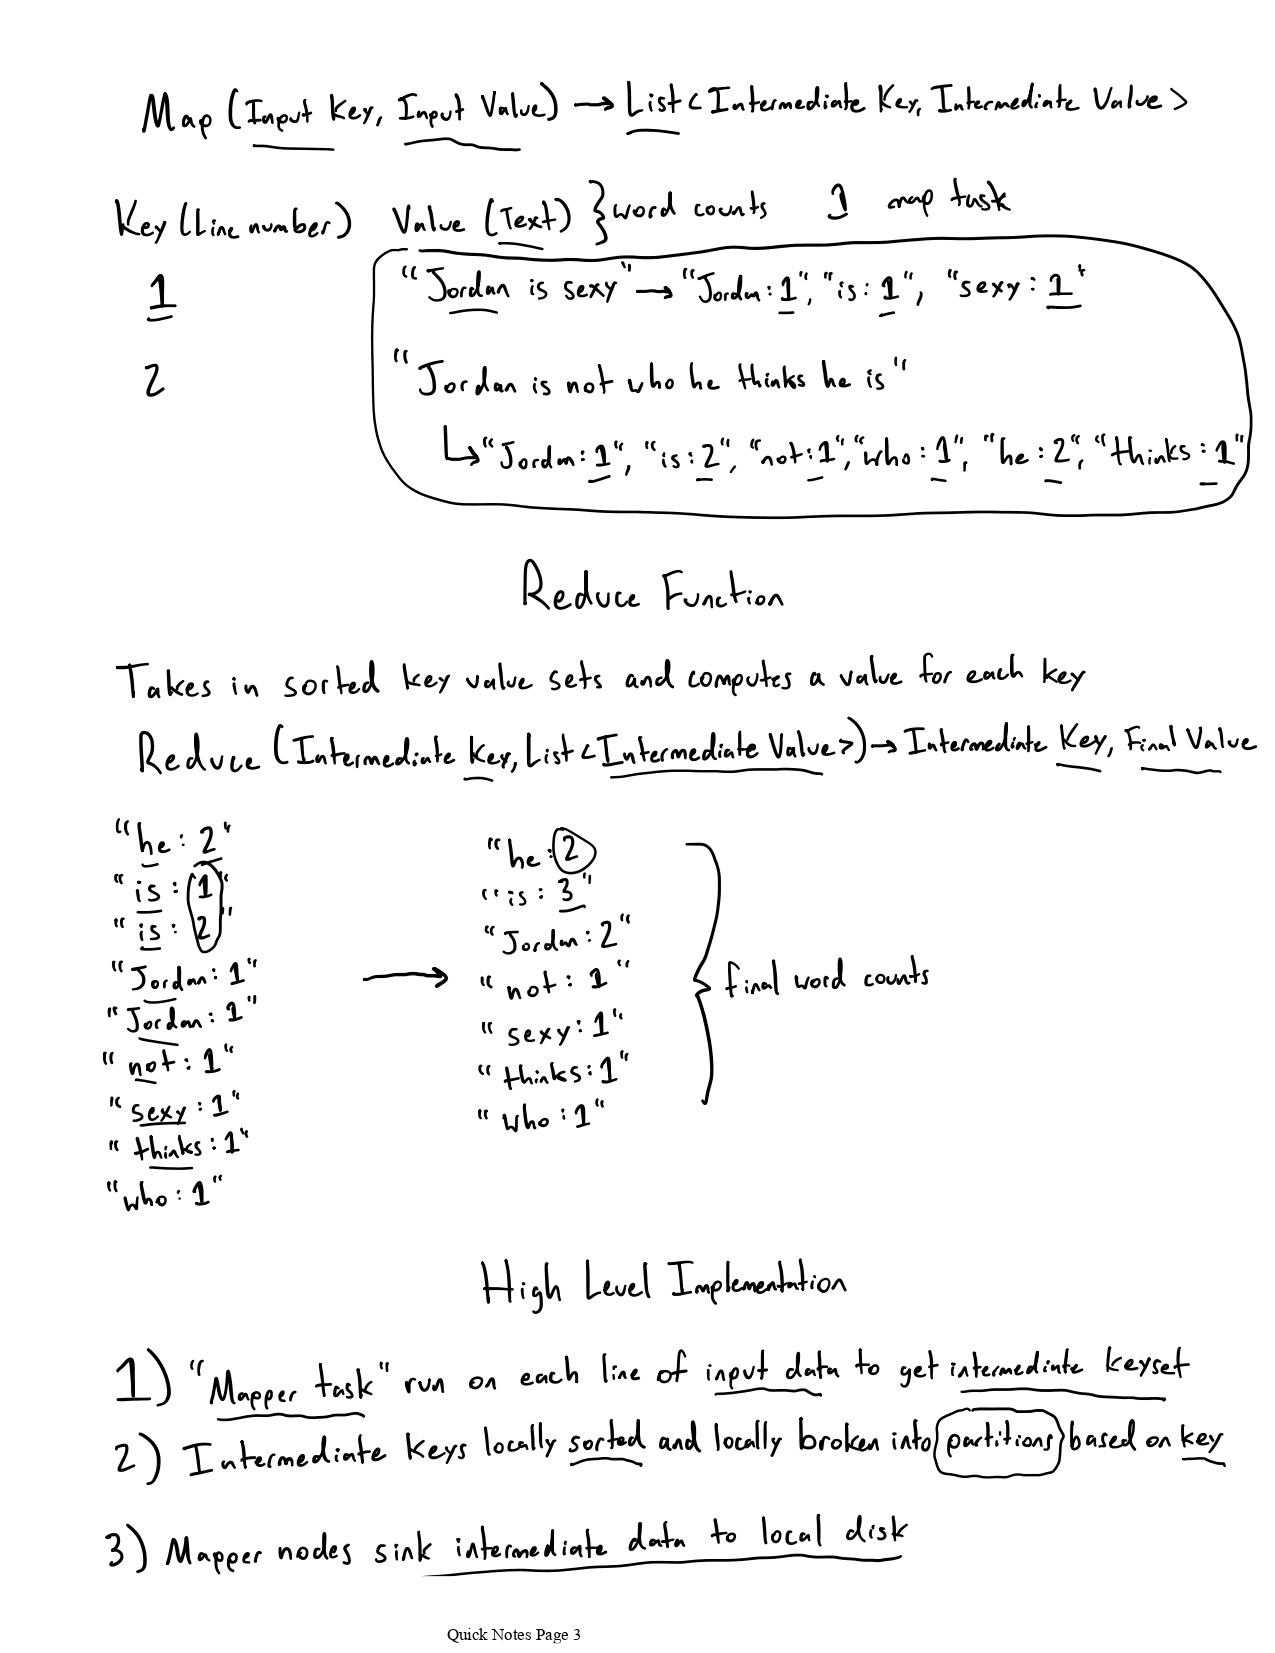 Map (Input Key, Input Value) → List<Intermediate Key, Intermediate Value>
Key (Line number) Value (Text) } word counts 1 map task
1 "Jordan is sexy" → "Jordan: 1", "is: 1", "sexy: 1"
2 "Jordan is not who he thinks he is"
↳ "Jordan: 1", "is: 2", "not: 1", "who: 1", "he: 2", "thinks: 1"
Reduce Function
Takes in sorted key value sets and computes a value for each key
Reduce (Intermediate Key, List<Intermediate Value>) → Intermediate Key, Final Value
"he: 2"
"is: 1"
"is: 2"
"Jordan: 1"
"Jordan: 1"
"not: 1"
"sexy: 1"
"thinks: 1"
"who: 1"
→
"he: 2
"is: 3"
"Jordan: 2"
"not: 1"
"sexy: 1"
"thinks: 1"
"who: 1"
} final word counts
High Level Implementation
1) "Mapper task" run on each line of input data to get intermediate keyset
2) Intermediate keys locally sorted and locally broken into partitions based on key
3) Mapper nodes sink intermediate data to local disk
Quick Notes Page 3